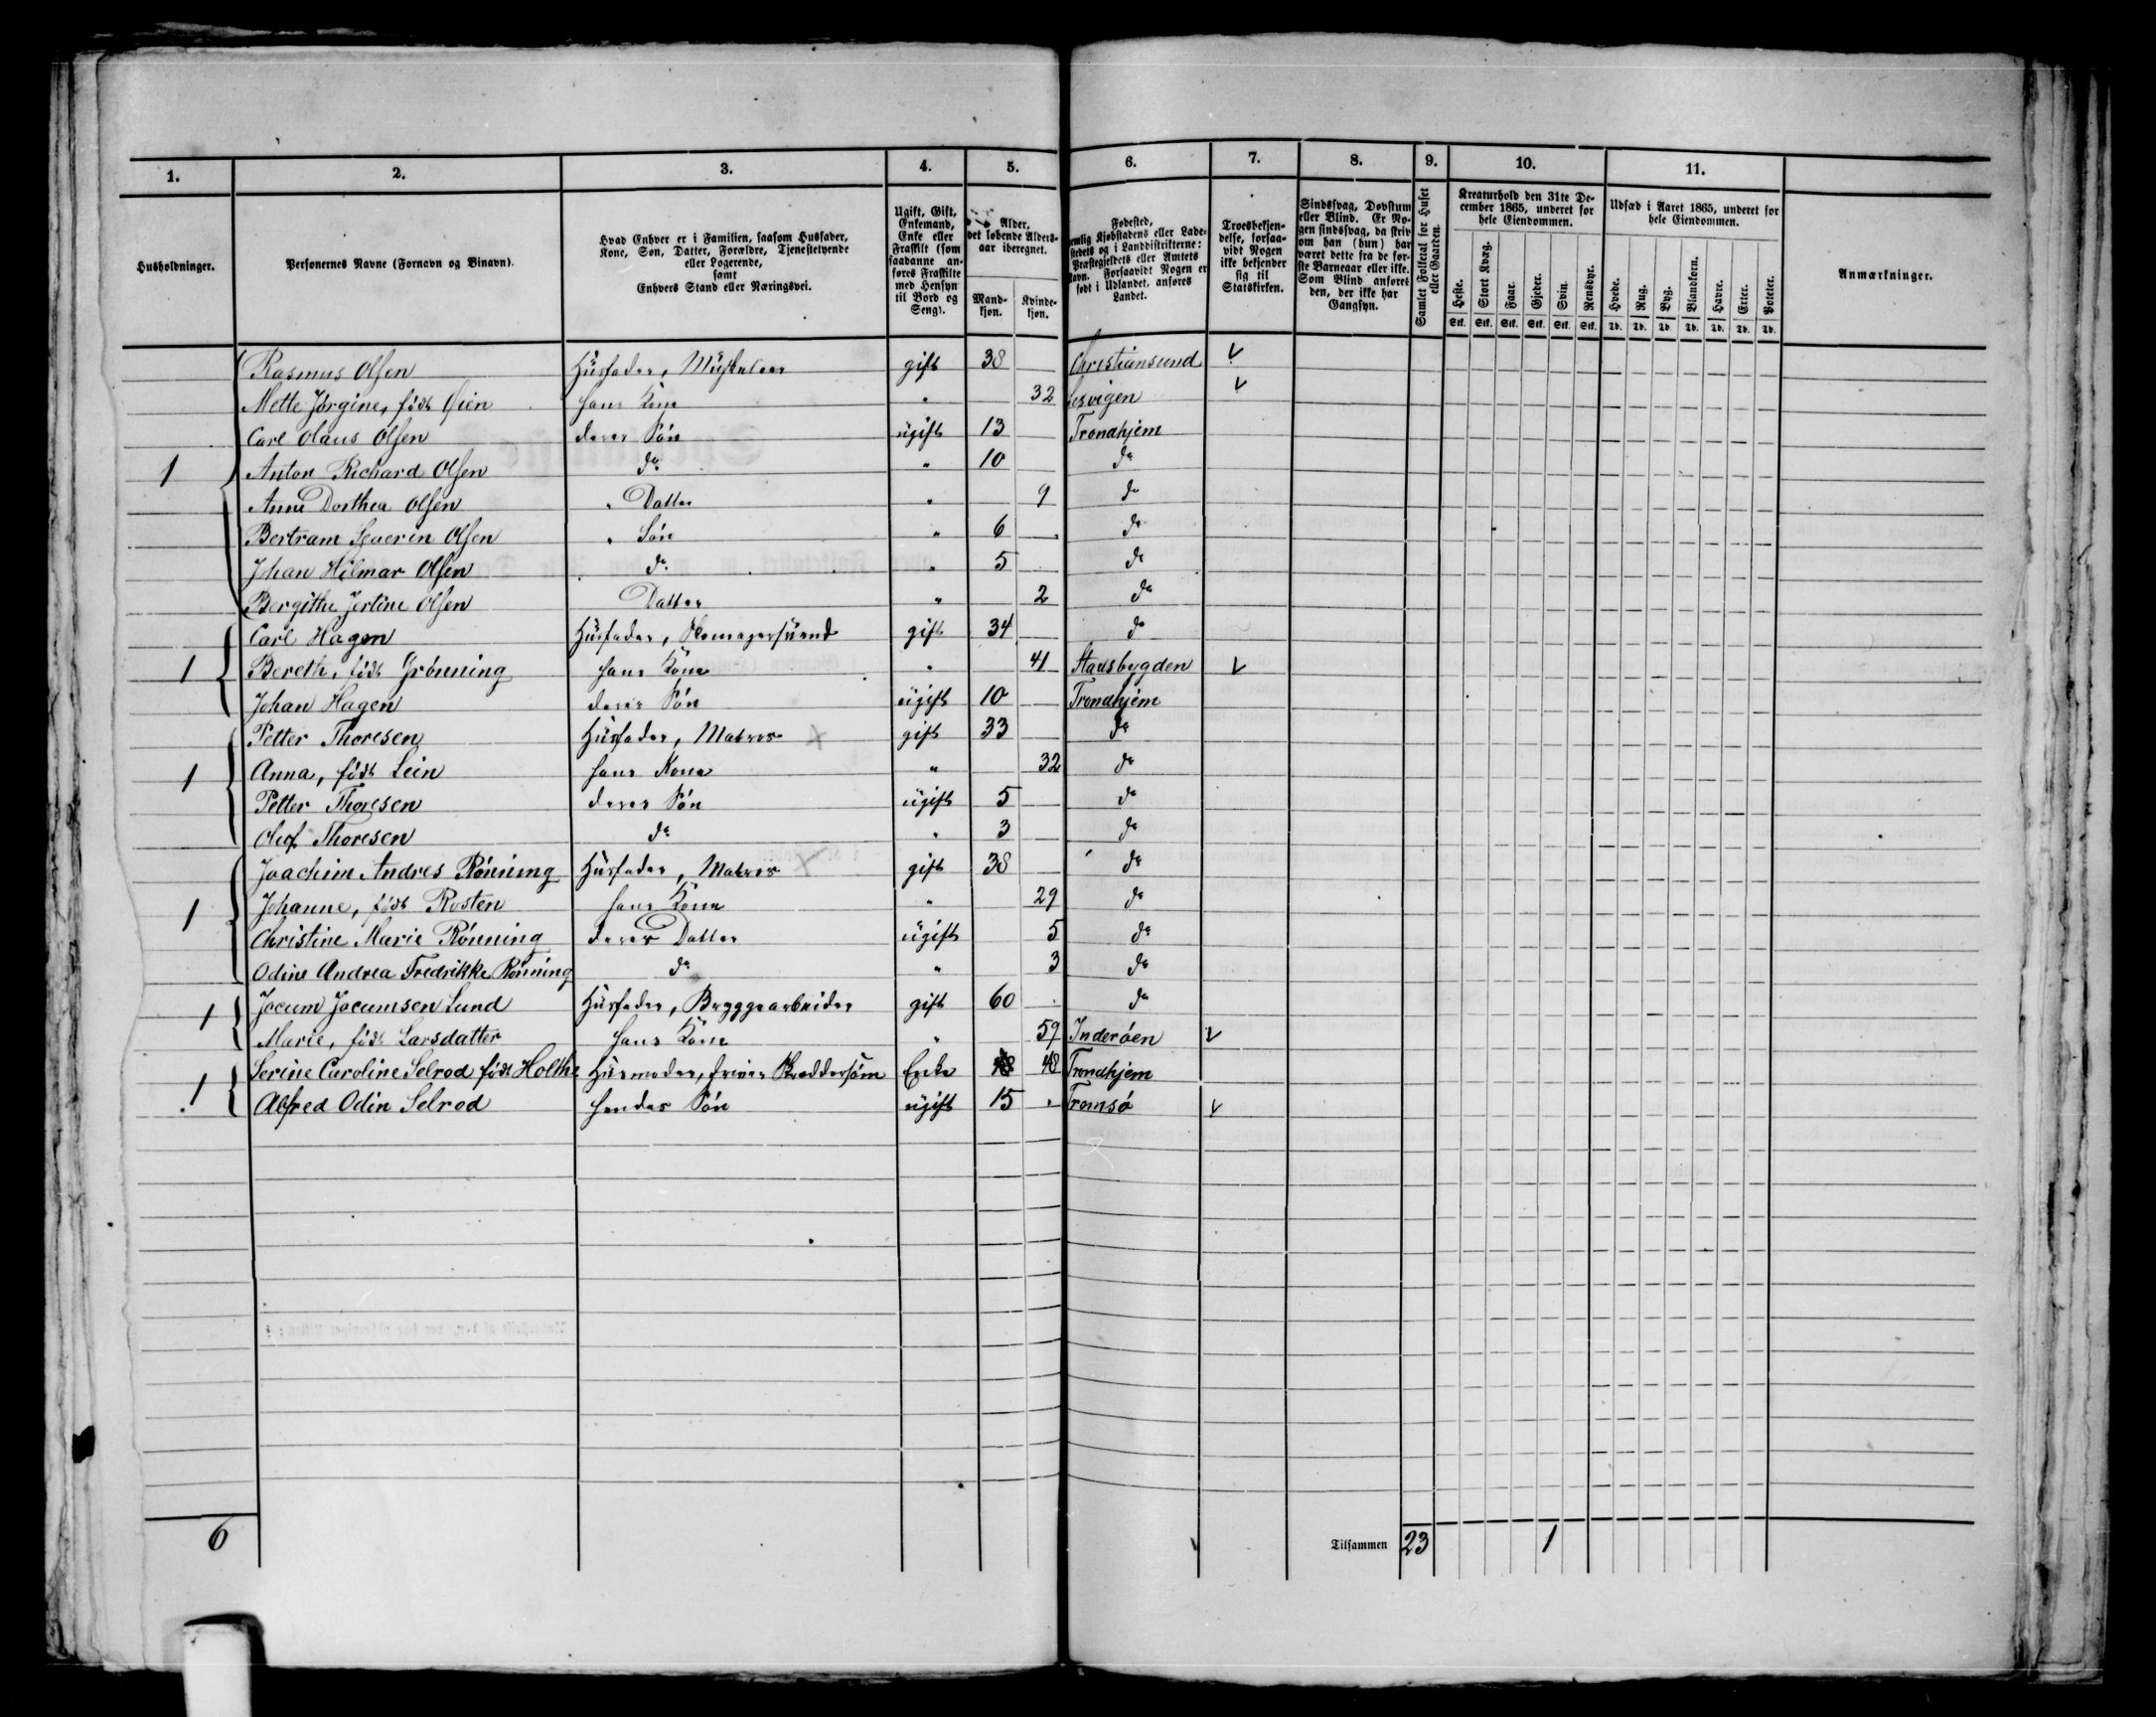 1. 2. 3. 4. 5. 6. 7. 8. 9. 10. 11.
Husholdninger.
Personernes Navne (Fornavn og Binavn).
Hvad Enhver er i Familien, saasom Husfader,
Kone, Søn, Datter, Forældre, Tjenestetyende
eller Logerende,
samt
Enhvers Stand eller Næringsvei.
Ugift, Gift,
Enkemand,
Enke eller
Fraskilt (som
saadanne an-
føres Fraskilte
med Hensyn
til Bord og
Seng).
Alder,
det løbende Alders-
aar iberegnet.
Mand-
kjøn.
Kvinde-
kjøn.
Fødested,
nemlig Kjøbstadens eller Lade-
stedets og i Landdistrikterne:
Præstegjeldets eller Amtets
Navn. Forsaavidt Nogen er
født i Udlandet, anføres
Landet.
Troesbekjen-
delse, forsaa-
vidt Nogen
ikke bekjender
sig til
Statskirken.
Sindssvag, Døvstum
eller Blind. Er No-
gen sindssvag, da skriv
om han (hun) har
været dette fra de før-
ste Barneaar eller ikke.
Som Blind anføres
den, der ikke har
Gangsyn.
Samlet Folketal for Huset
eller Gaarden.
Kreaturhold den 31te De-
cember 1865, underet for
hele Eiendommen.
Heste. Stort Kvæg. Faar. Gjeder. Svin. Rensdyr.
Stk. Stk. Stk. Stk. Stk. Stk.
Udsæd i Aaret 1865, underet for
hele Eiendommen.
Hvede. Rug. Byg. Blandkorn. Havre. Erter. Poteter.
Td. Td. Td. Td. Td. Td. Td.
Anmærkninger.
Rasmus Olsen Husfader, gift 38 Christiansund
Mette Jørgine, født Øien hans Kone " 32 Lesvigen
Carl Olaus Olsen deres Søn ugift 13 Trondhjem
1 Anton Richard Olsen do " 10 do
Anne Dorthea Olsen " Datter " 9 do
Bertram Severin Olsen " Søn " 6 do
Johan Hilmar Olsen do " 5 do
Bergithe Jertine Olsen Datter " 2 do
Carl Hagen Husfader, gift 34 do
1 Bereth, født Grønning hans Kone " 41 Stadsbygden
Johan Hagen deres Søn ugift 10 Trondhjem
Petter Thoresen Husfader, Matros gift 33 do
1 Anna, født Lein hans Kone " 32 do
Petter Thoresen deres Søn ugift 5 do
Oluf Thoresen do " 3 do
Joachim Andres Rønning Husfader, Matros gift 38 do
1 Johanne, født Rosten hans Kone " 29 do
Christine Marie Rønning deres Datter ugift 5 do
Odine Andrea Fredrikke Rønning do " 3 do
1 Jocum Jocumsen Lund Husfader, Bryggearbeider gift 60 do
Marie, født Larsdatter hans Kone " 59 Inderøen
1 Serine Caroline Selrod født Holthe Husmoder, driver Skreddersøm Enke 48 Trondhjem
Alfred Odin Selrod hendes Søn ugift 15 Tromsø
6 Tilsammen 23 1